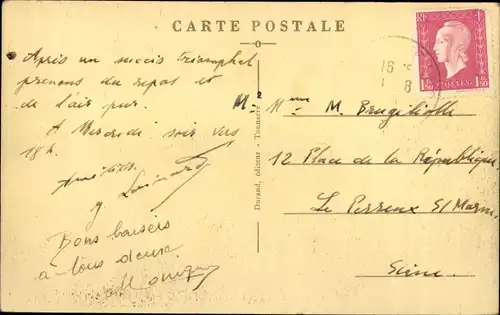 CARTE POSTALE
Après un succès triomphal
prenons du repos et
de l'air pur.
A Mercredi soir vers
18 h.
Bons baisers
à tous deux
Durand, édienne - Tonnerre
RF
1F50 POSTES 1F50
16
8
Mr Mme M.
12 Place de la République
Le Perreux S/Marne
Seine